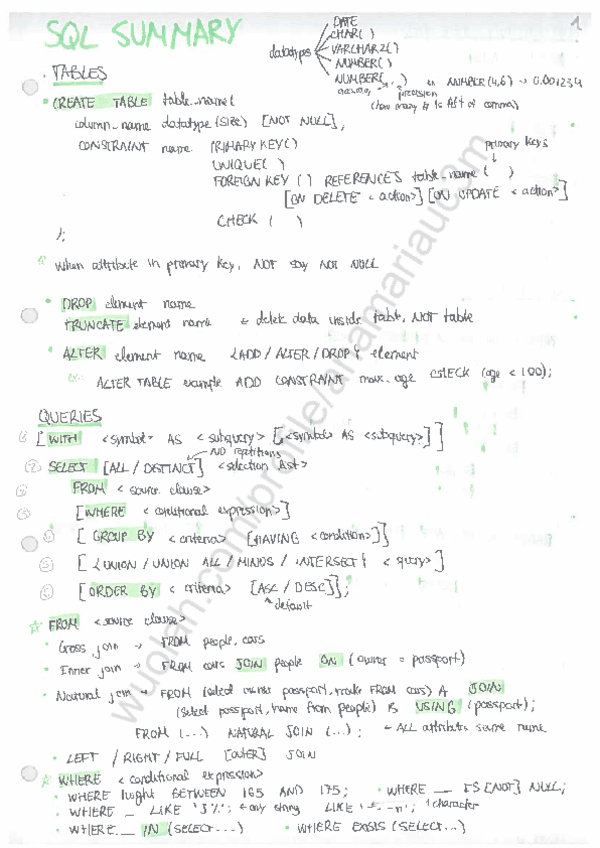 SQL SUMMARY
1
datatypes
DATE
CHAR( )
VARCHAR2( )
NUMBER( )
NUMBER( , ) NUMBER(4,6) → 0.001234
precision
(how many # to left of comma)
· TABLES
· CREATE TABLE table_name(
column_name datatype (SIZE) [NOT NULL],
CONSTRAINT name PRIMARY KEY( )
primary keys
UNIQUE( )
FOREIGN KEY ( ) REFERENCES table_name ( )
[ON DELETE <action>] [ON UPDATE <action>]
CHECK ( )
);
When attribute in primary key, NOT say NOT NULL
· DROP element name
TRUNCATE element name ← delete data inside table, NOT table
· ALTER element name {ADD / ALTER / DROP} element
ALTER TABLE example ADD CONSTRAINT max_age CHECK (age < 100);
QUERIES
[WITH <symbol> AS <subquery> [,<symbol> AS <subquery>]]
NO repetitions
SELECT [ALL / DISTINCT] <selection list>
FROM <source clause>
[WHERE <conditional expression>]
[GROUP BY <criteria> [HAVING <condition>]]
[{UNION / UNION ALL / MINUS / INTERSECT} <query>]
[ORDER BY <criteria> [ASC / DESC]];
default
☆ FROM <source clause>
· Cross join → FROM people, cars
· Inner join → FROM cars JOIN people ON (owner = passport)
· Natural join → FROM (select owner passport, made FROM cars) A JOIN
(select passport, name from people) B USING (passport);
FROM (...) NATURAL JOIN (...); ← ALL attributes same name
· LEFT / RIGHT / FULL [OUTER] JOIN
☆ WHERE <conditional expression>
· WHERE height BETWEEN 165 AND 175; · WHERE __ IS [NOT] NULL;
· WHERE _ LIKE 'J%'; ← any string LIKE 1 character
· WHERE __ IN (SELECT...) · WHERE EXISTS (SELECT...)
wuolah.com/profile/ainamariauc3m